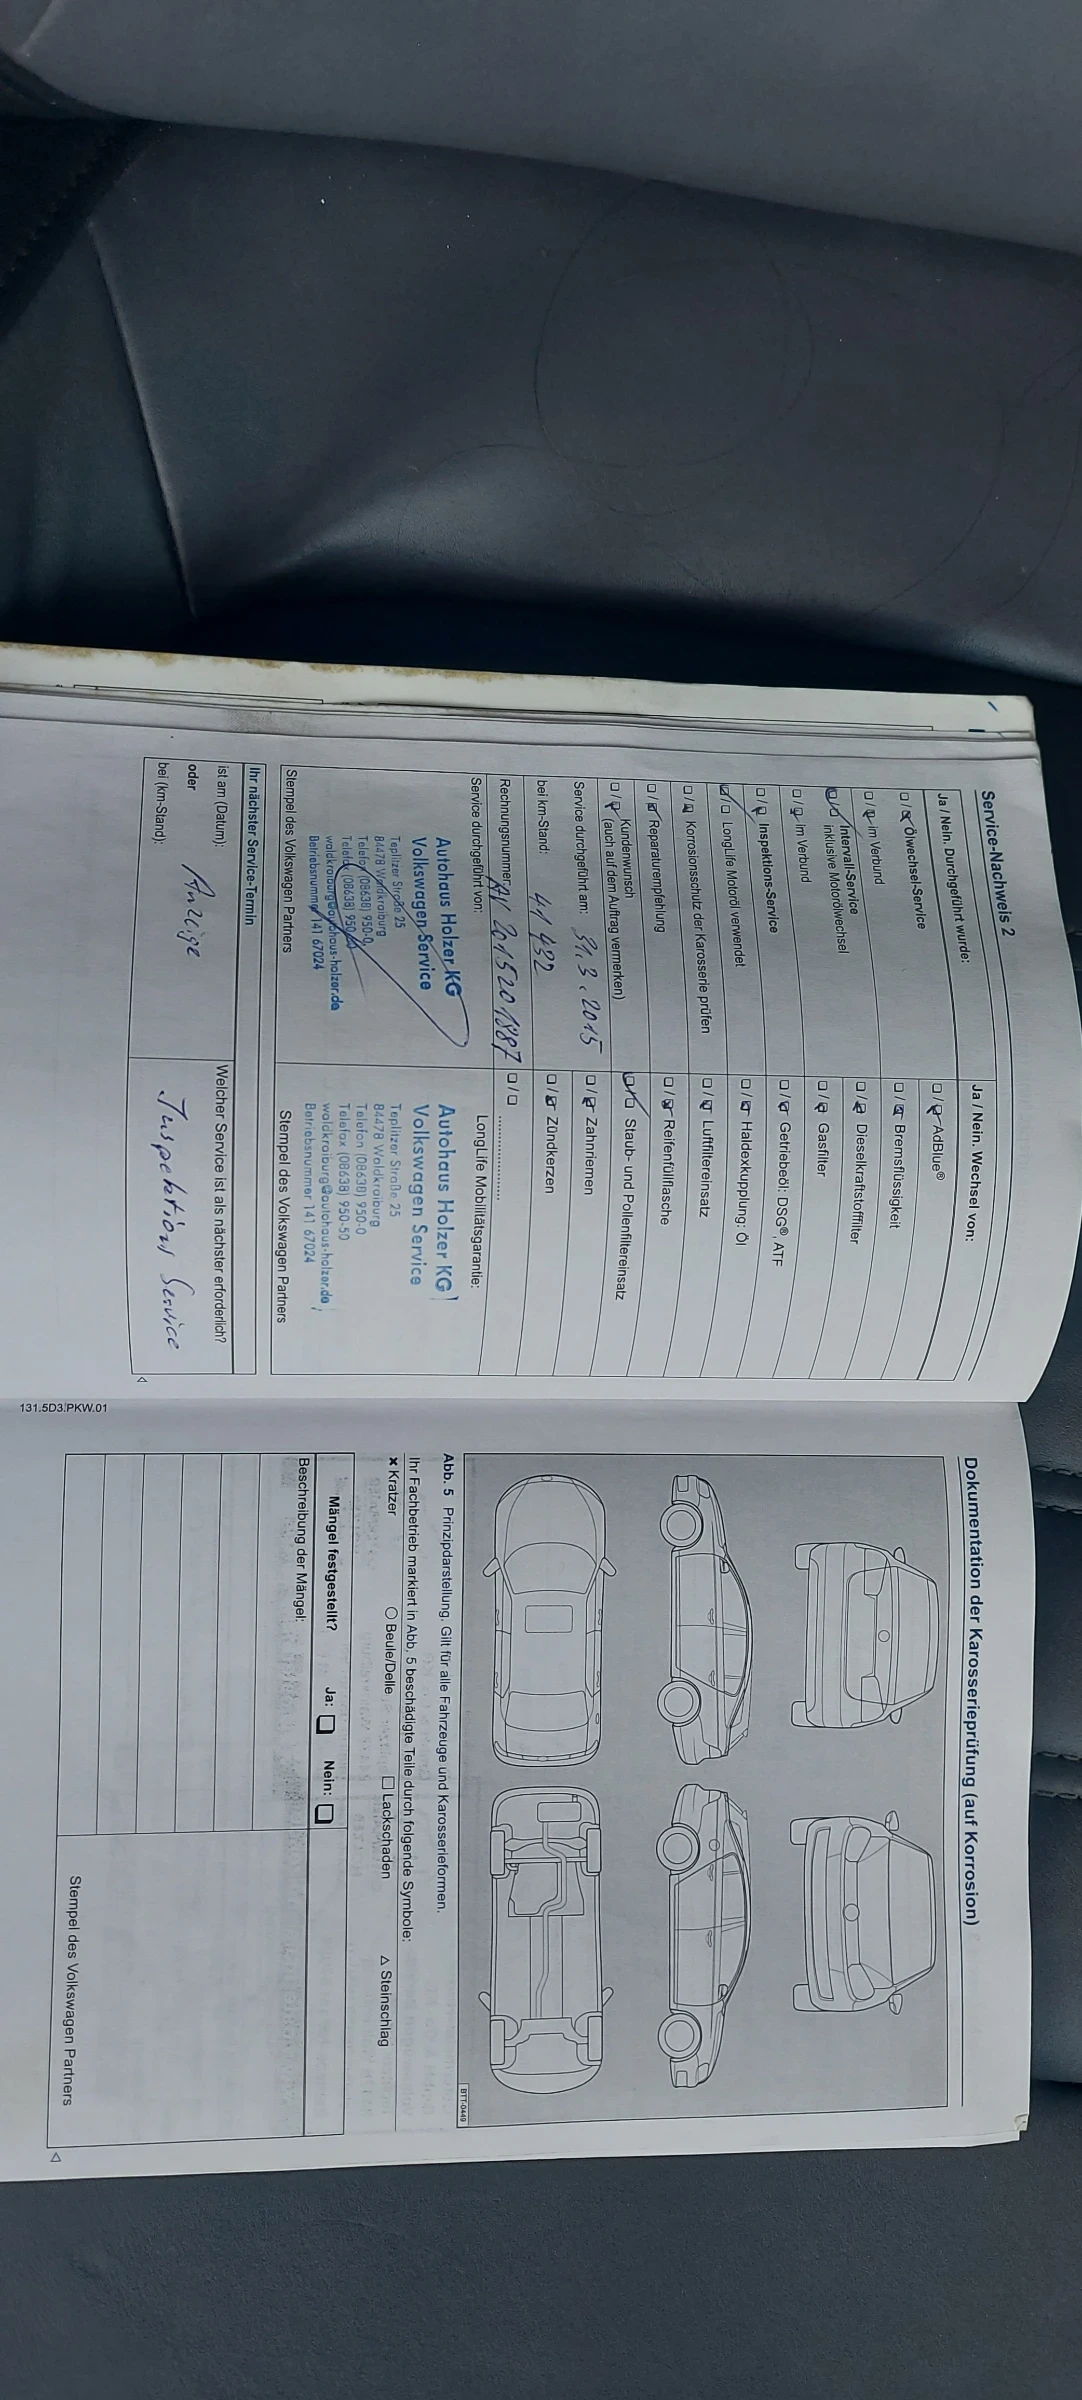 Service-Nachweis 2
Ja / Nein. Durchgeführt wurde:
Ja / Nein. Wechsel von:
Ölwechsel-Service
AdBlue®
im Verbund
Bremsflüssigkeit
Intervall-Service
inklusive Motorölwechsel
Dieselkraftstofffilter
im Verbund
Gasfilter
Inspektions-Service
Getriebeöl: DSG®, ATF
LongLife Motoröl verwendet
Haldexkupplung: Öl
Korrosionsschutz der Karosserie prüfen
Luftfiltereinsatz
Reparaturempfehlung
Reifenfüllflasche
Kundenwunsch
(auch auf dem Auftrag vermerken)
Staub- und Pollenfiltereinsatz
Service durchgeführt am: 31.3.2015
Zahnriemen
bei km-Stand: 41 432
Zündkerzen
Rechnungsnummer: 201520 1887
Service durchgeführt von:
LongLife Mobilitätsgarantie:
Autohaus Holzer KG
Volkswagen Service
Teplitzer Straße 25
84478 Waldkraiburg
Telefon (08638) 950-0
Telefax (08638) 950-50
waldkraiburg@autohaus-holzer.de
Betriebsnummer 141 67024
Stempel des Volkswagen Partners
Autohaus Holzer KG
Volkswagen Service
Teplitzer Straße 25
84478 Waldkraiburg
Telefon (08638) 950-0
Telefax (08638) 950-50
waldkraiburg@autohaus-holzer.de
Betriebsnummer 141 67024
Stempel des Volkswagen Partners
Ihr nächster Service-Termin
ist am (Datum):
oder Anzeige
bei (km-Stand):
Welcher Service ist als nächster erforderlich?
Inspektions Service
131.5D3.PKW.01
Dokumentation der Karosserieprüfung (auf Korrosion)
BTT-0449
Abb. 5 Prinzipdarstellung. Gilt für alle Fahrzeuge und Karosserieformen.
Ihr Fachbetrieb markiert in Abb. 5 beschädigte Teile durch folgende Symbole:
✖ Kratzer ○ Beule/Delle □ Lackschaden △ Steinschlag
Mängel festgestellt? Ja: □ Nein: □
Beschreibung der Mängel:
Stempel des Volkswagen Partners